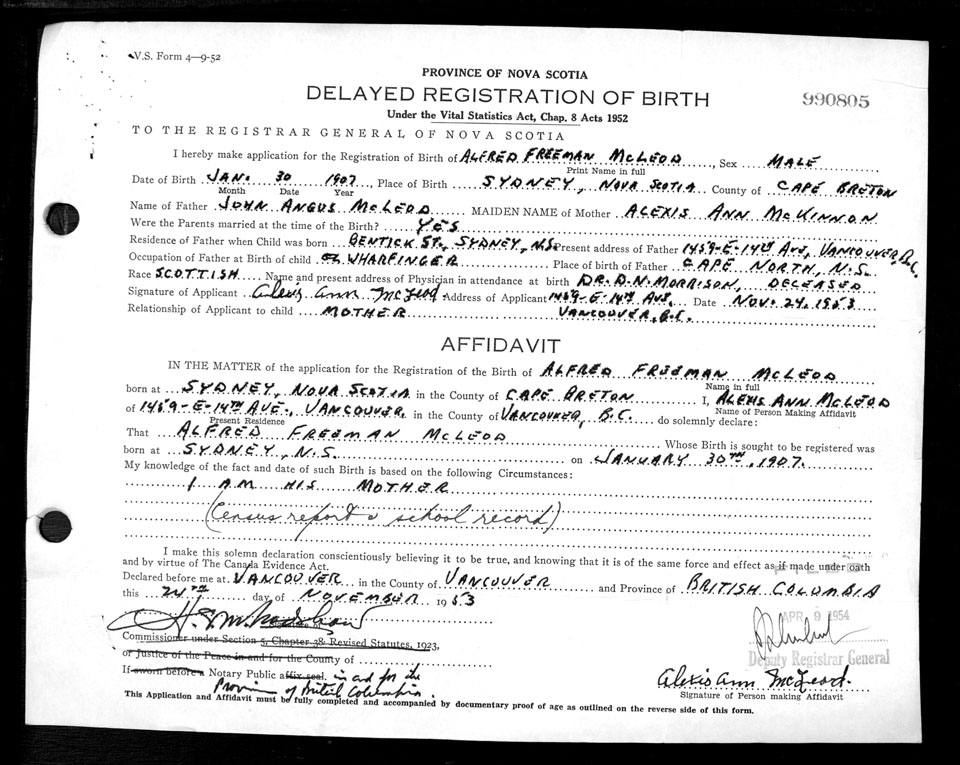 V.S. Form 4—9-52
PROVINCE OF NOVA SCOTIA
DELAYED REGISTRATION OF BIRTH
990805
Under the Vital Statistics Act, Chap. 8 Acts 1952
TO THE REGISTRAR GENERAL OF NOVA SCOTIA
I hereby make application for the Registration of Birth of ALFRED FREEMAN MCLEOD, Sex MALE
Print Name in full
Date of Birth JAN. 30 1907, Place of Birth SYDNEY, NOVA SCOTIA County of CAPE BRETON
Month Date Year
Name of Father JOHN ANGUS MCLEOD MAIDEN NAME of Mother ALEXIS ANN MCKINNON
Were the Parents married at the time of the Birth? YES
Residence of Father when Child was born BENTICK ST., SYDNEY, N.S. Present address of Father 1459-E-14TH AVE, VANCOUVER, B.C.
Occupation of Father at Birth of child WHARFINGER Place of birth of Father CAPE NORTH, N.S.
Race SCOTTISH Name and present address of Physician in attendance at birth DR. D.N. MORRISON, DECEASED
Signature of Applicant Alexis Ann McLeod Address of Applicant 1459-E-14TH AVE, Date NOV. 24, 1953
Relationship of Applicant to child MOTHER VANCOUVER, B.C.
AFFIDAVIT
IN THE MATTER of the application for the Registration of the Birth of ALFRED FREEMAN MCLEOD
Name in full
born at SYDNEY, NOVA SCOTIA in the County of CAPE BRETON I, ALEXIS ANN MCLEOD
Name of Person Making Affidavit
of 1459-E-14TH AVE., VANCOUVER in the County of VANCOUVER, B.C. do solemnly declare:
Present Residence
That ALFRED FREEMAN MCLEOD Whose Birth is sought to be registered was
born at SYDNEY, N.S. on JANUARY 30TH, 1907.
My knowledge of the fact and date of such Birth is based on the following Circumstances:
I AM HIS MOTHER
(Census report & school record)
I make this solemn declaration conscientiously believing it to be true, and knowing that it is of the same force and effect as if made under oath
and by virtue of The Canada Evidence Act.
Declared before me at VANCOUVER in the County of VANCOUVER and Province of BRITISH COLUMBIA
this 24TH day of NOVEMBER 1953
APR 9 1954
Commissioner under Section 5, Chapter 38 Revised Statutes, 1923,
or Justice of the Peace in and for the County of
Deputy Registrar General
If sworn before a Notary Public affix seal. in and for the
Province of British Columbia.
Alexis Ann McLeod.
Signature of Person making Affidavit
This Application and Affidavit must be fully completed and accompanied by documentary proof of age as outlined on the reverse side of this form.